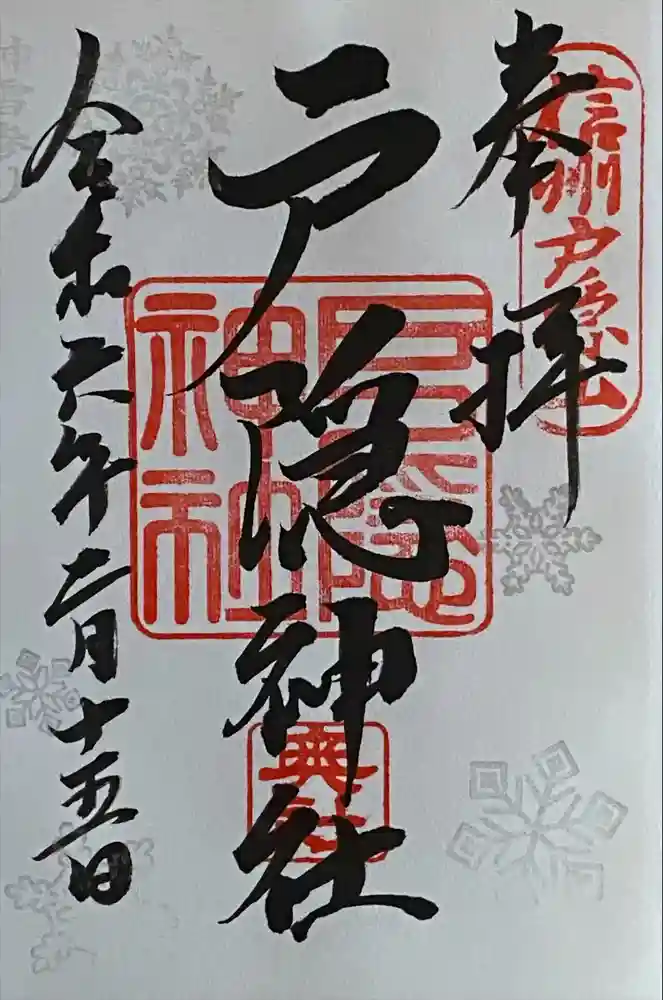 奉拝
信州戸隠山
戸隠神社
戸隠
神社
奥社
令和六年二月十五日